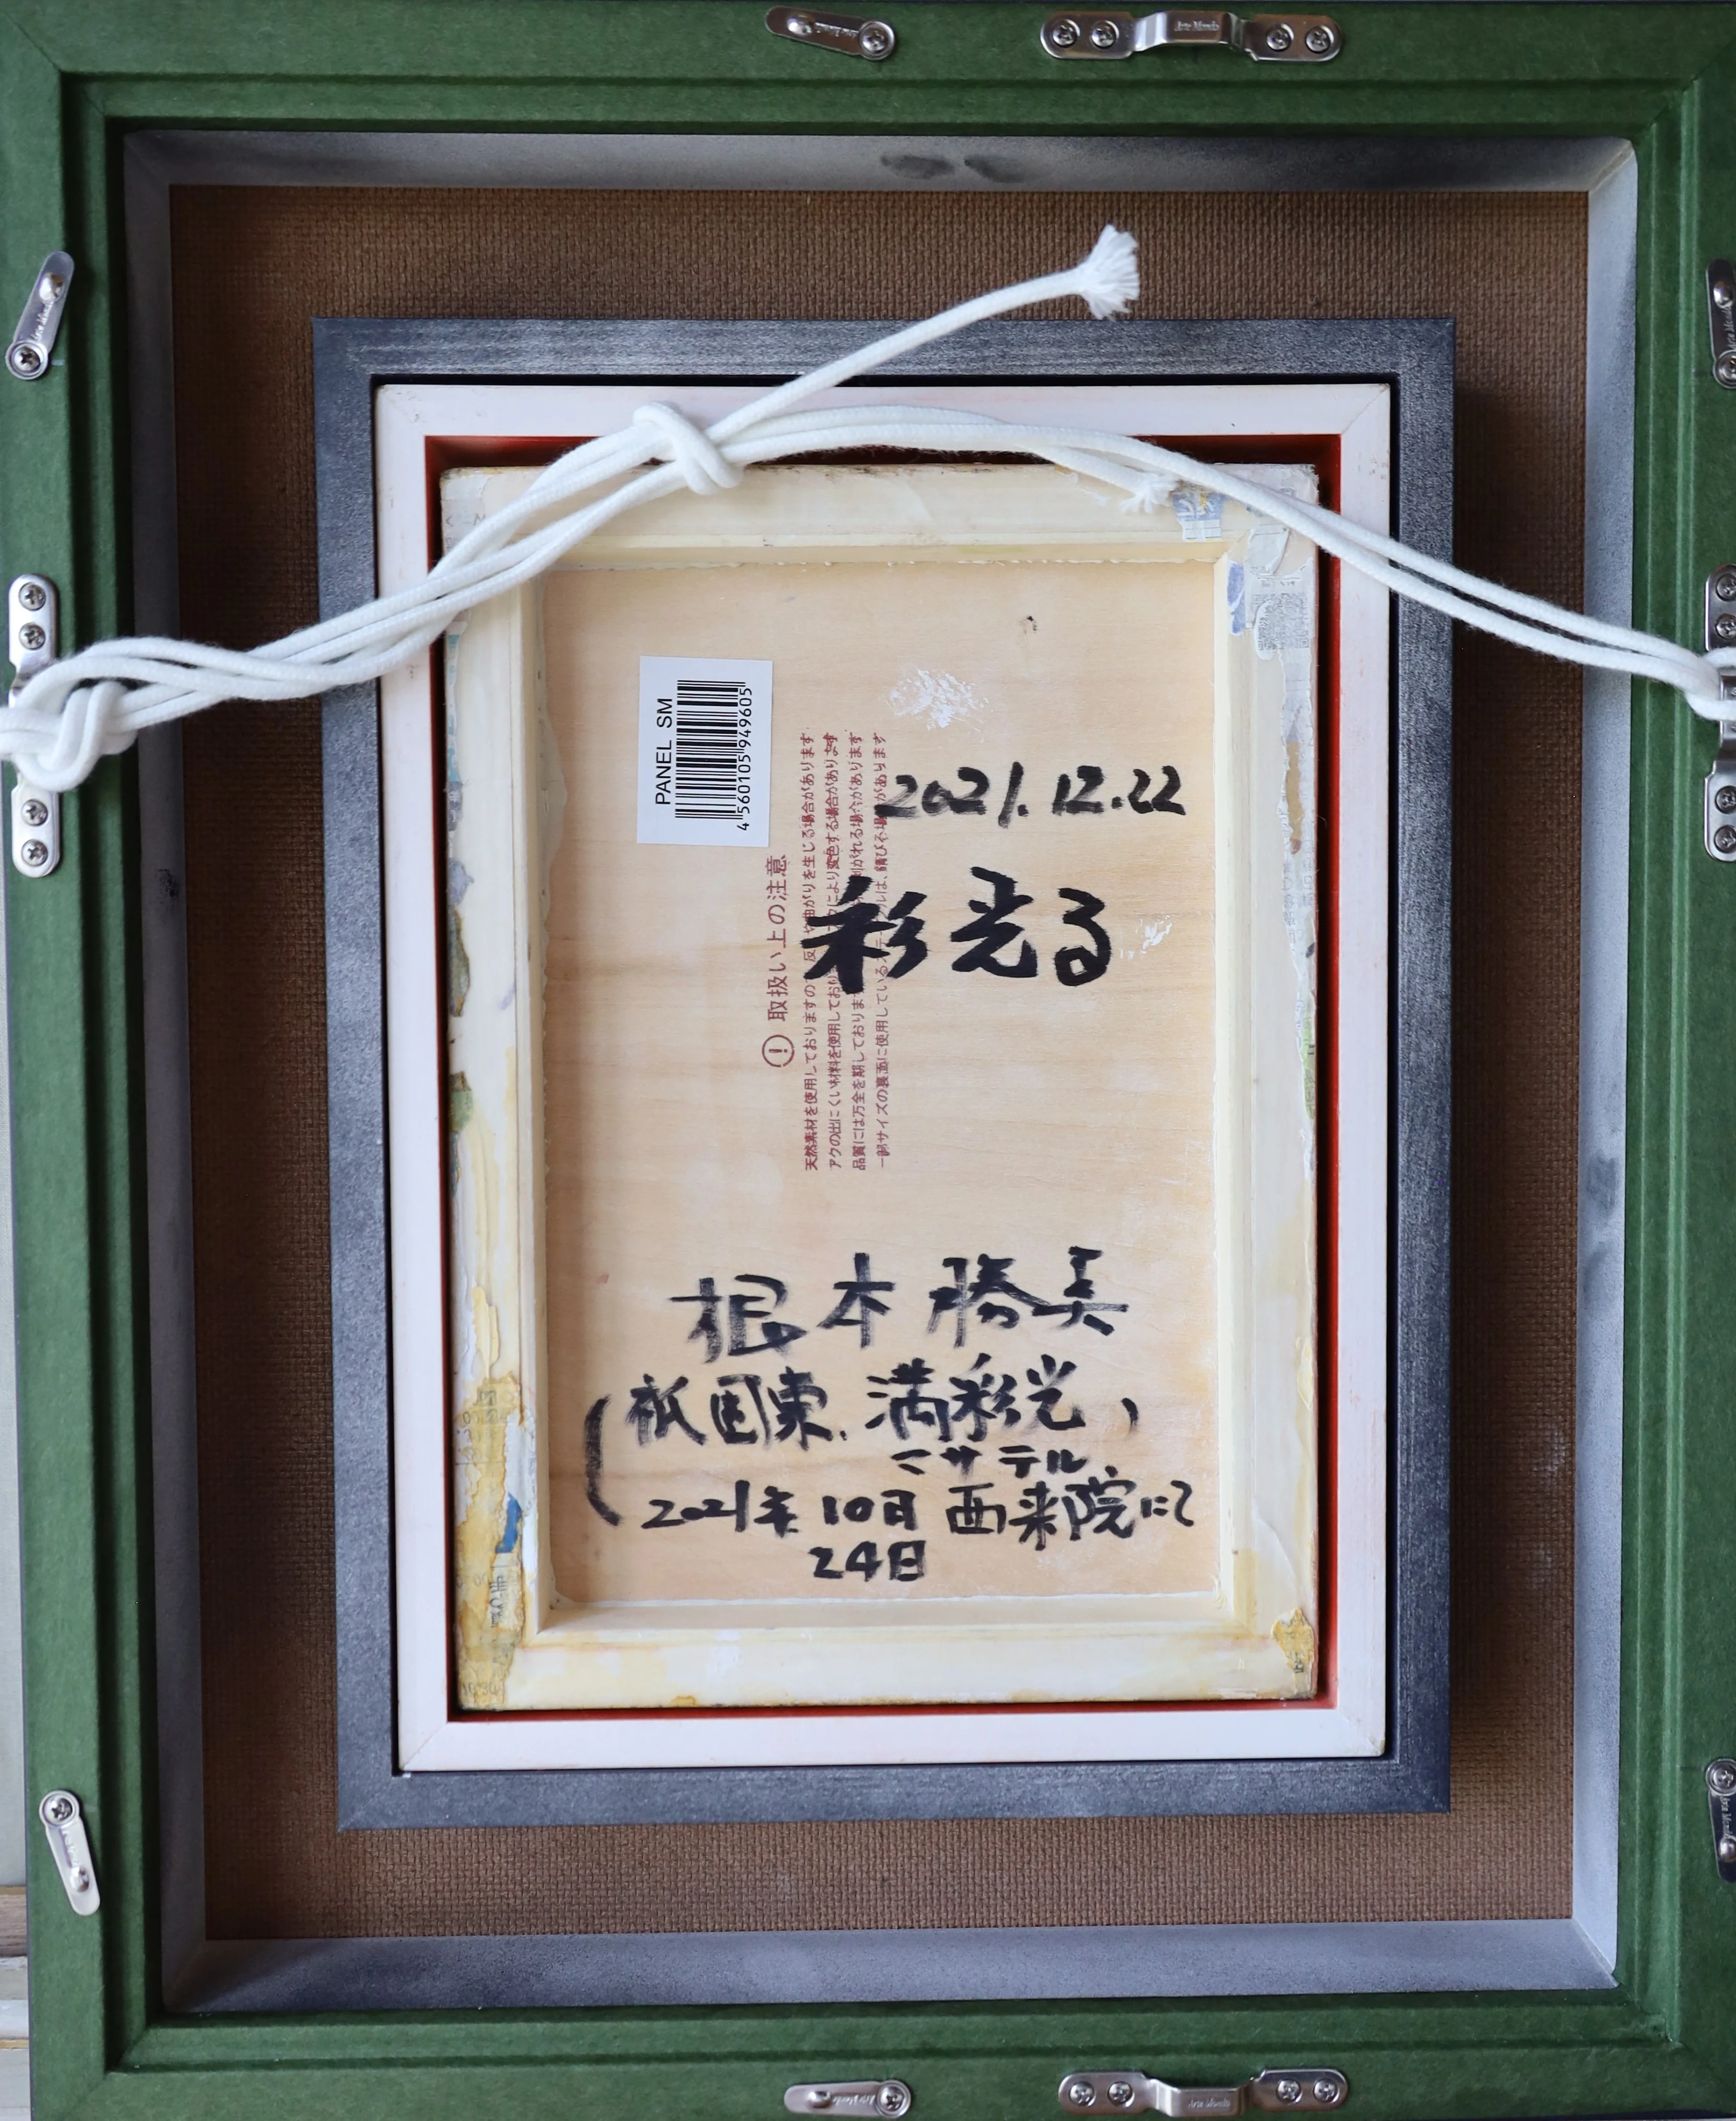 PANEL SM
4560105949605
2021.12.22
彩光る
取扱い上の注意
天然素材を使用しておりますので反りや曲がりを生じる場合があります
アクの出にくい材料を使用しており により変色する場合があります
品質には万全を期しております がれる場合があります
一部サイズの裏面に使用している は、錆びる場合があります
根本勝美
(祇園東.満彩光)
ミサテル
2021年10月 西来院にて
24日